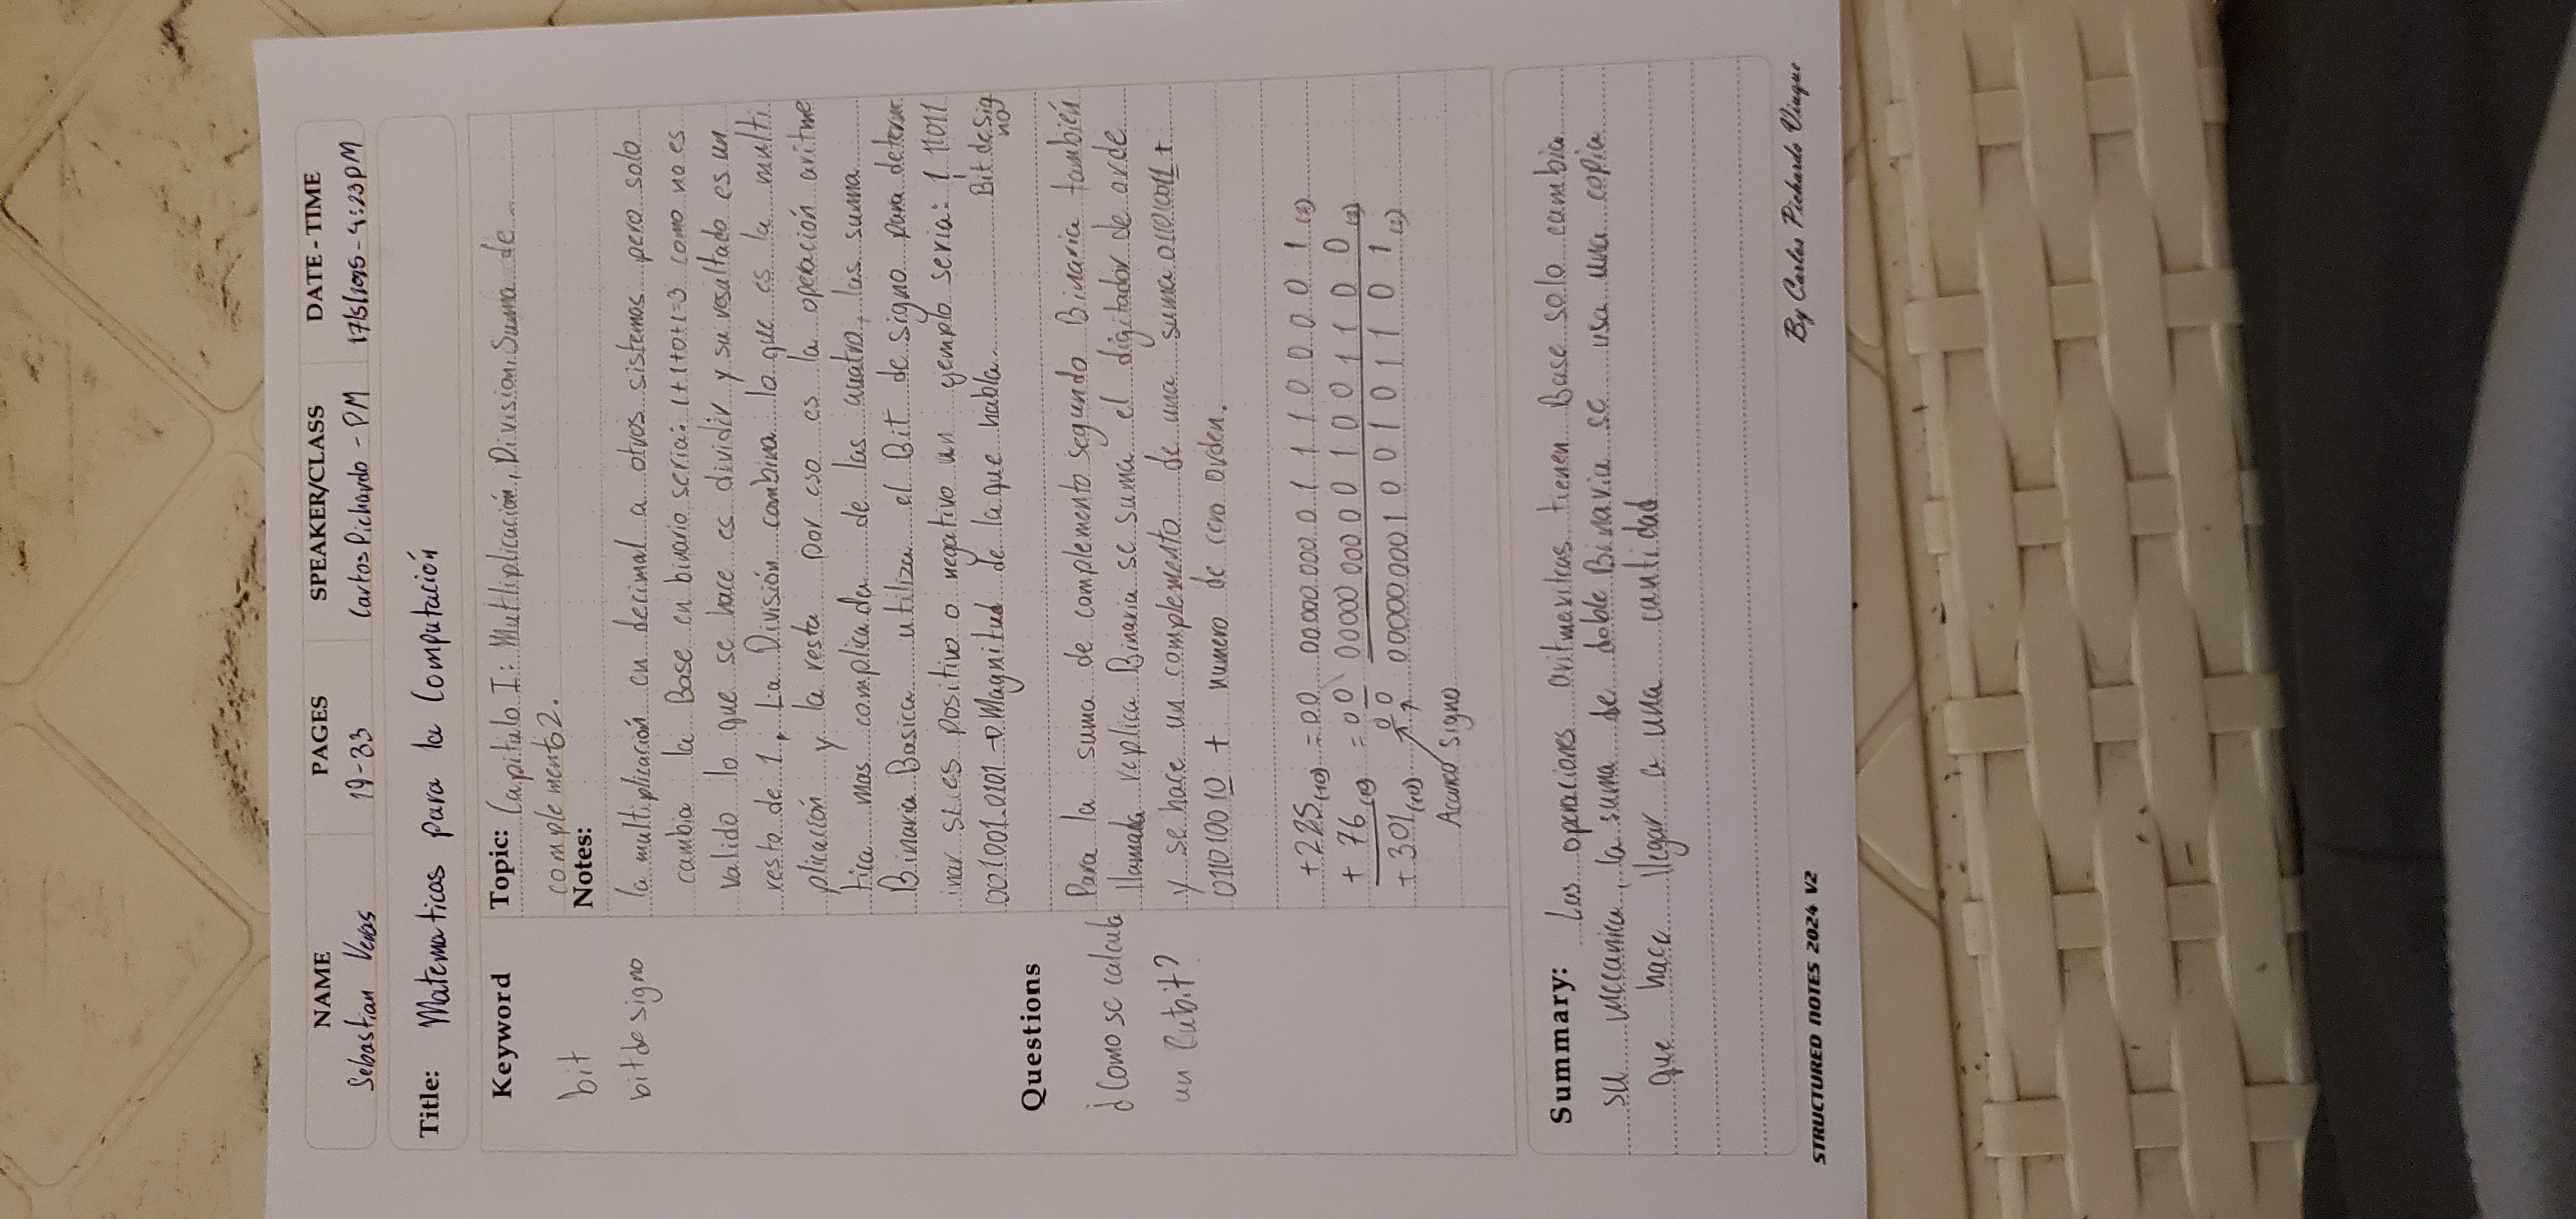 NAME PAGES SPEAKER/CLASS DATE - TIME
Sebastian Veras 19-33 Carlos Pichardo - PM 17/5/2025 - 4:23PM
Title: Matematicas para la Computación
Keyword
bit
bit de signo
Topic: Capitulo I: Mutliplicación, Division, Suma de
complemento 2.
Notes:
la multiplicación en decimal a otros sistemas pero solo
cambia la Base en binario seria: 1+1+0+1=3 como no es
valido lo que se hace es dividir y su resultado es un
resto de 1. La División combina lo que es la multi
plicación y la resta por eso es la operación aritme
tica mas complicada de las cuatro, las suma
Binaria Basica utiliza el Bit de signo para determ
inar si es positivo o negativo un ejemplo seria: 1 11011
001001.0101 → Magnitud de la que habla. Bit de sig
no
Questions
¿Como se calcula
un Cubit?
Para la suma de complemento segundo Binaria también
llamada replica Binaria se suma el digitador de orde
y se hace un complemento de una suma 011010011 +
011010010 + numero de cero orden.
+225(10) = 00 00000000 0 1 1 1 0 0 0 0 1 (2)
+ 76(10) = 00 00000000 0 0 1 0 0 1 1 0 0 (2)
+301(10) 00 00000001 0 0 1 0 1 1 0 1 (2)
Acarreo signo
Summary: Las operaciones aritmeviteas tienen Base solo cambia
su meccanica, la suma de doble Binaria se usa una copia
que hace llegar a una cantidad
STRUCTURED NOTES 2024 V2
By Carlos Pichardo Viuque